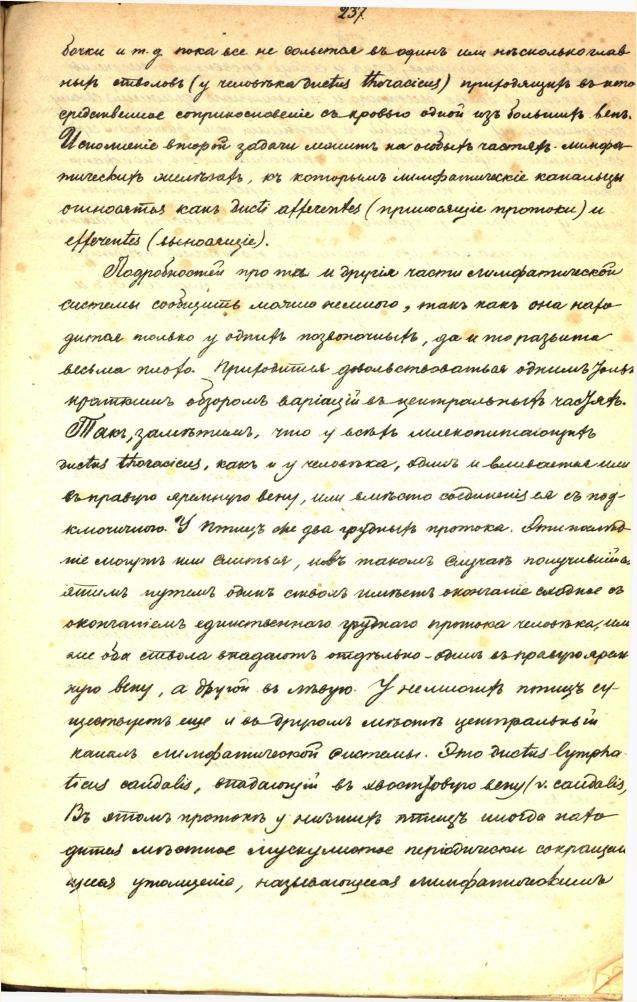 237.
бочки и т.д. пока все не сольется въ одинъ или нѣсколько глав-
ныхъ стволовъ (у человѣка ductus thoracicus) приходящихъ въ непо
средственное соприкосновеніе съ кровью одной изъ большихъ венъ.
Исполненіе второй задачи лежитъ на особыхъ частяхъ - лимфа-
тическихъ железахъ, къ которымъ лимфатическіе канальцы
относятся какъ ducti afferentes (приносящіе протоки) и
efferentes (выносящіе).
Подробностей про та и другія части лимфатической
системы сообщить можно немного, такъ какъ она нахо
дится только у однихъ позвоночныхъ, да и то развита
весьма плохо. Приходится довольствоваться однимъ только
краткимъ обзоромъ варіацій въ центральныхъ частяхъ.
Такъ, замѣтимъ, что у всѣхъ млекопитающихъ
ductus thoracicus, какъ и у человѣка, одинъ и вливается или
въ правую яремную вену, или въ мѣсто соединенія ея съ под-
ключичною. У птицъ же два грудныхъ протока. Эти послѣд-
ніе могутъ или слиться, и въ такомъ случаѣ получившійся
этимъ путемъ одинъ стволъ имѣетъ окончаніе сходное съ
окончаніемъ единственнаго грудного протока человѣка, или
же оба ствола впадаютъ отдѣльно - одинъ въ правую ярем-
ную вену, а другой въ лѣвую. У немногихъ птицъ су-
ществуетъ еще и въ другомъ мѣстѣ центральный
каналъ лимфатической системы. Это ductus lympha-
ticus caudalis, впадающій въ хвостовую вену (v. caudalis,
Въ этомъ протокѣ у низшихъ птицъ иногда нахо
дится мѣстное мускулистое періодически сокращаю
щееся утолщеніе, называющееся лимфатическимъ